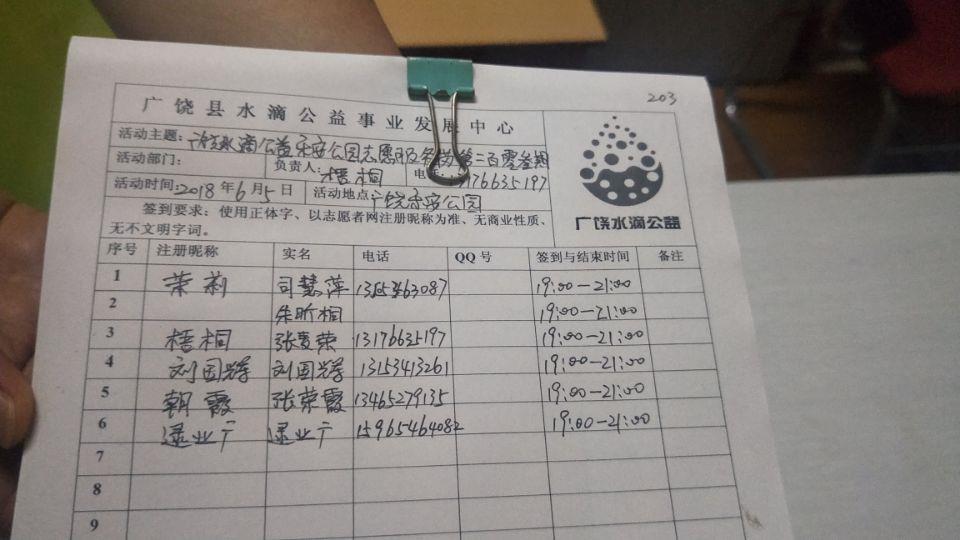 203
广饶县水滴公益事业发展中心
活动主题：广饶水滴公益乐安公园志愿服务第二百零叁期
活动部门： 负责人：梧桐 电 176635197
活动时间：2018年6月5日 活动地点 广饶乐安公园
签到要求：使用正体字、以志愿者网注册昵称为准、无商业性质、
无不文明字词。
广饶水滴公益
序号 注册昵称 实名 电话 QQ号 签到与结束时间 备注
1 茉莉 司慧萍 19:00-21:00
2 朱昕桐 19:00-21:00
3 梧桐 张 荣 13176635197 19:00-21:00
4 刘国辉 刘国辉 13153413261 19:00-21:00
5 朝霞 张荣霞 13465279135 19:00-21:00
6 逯业宁 逯业宁 15965464082 19:00-21:00
7
8
9